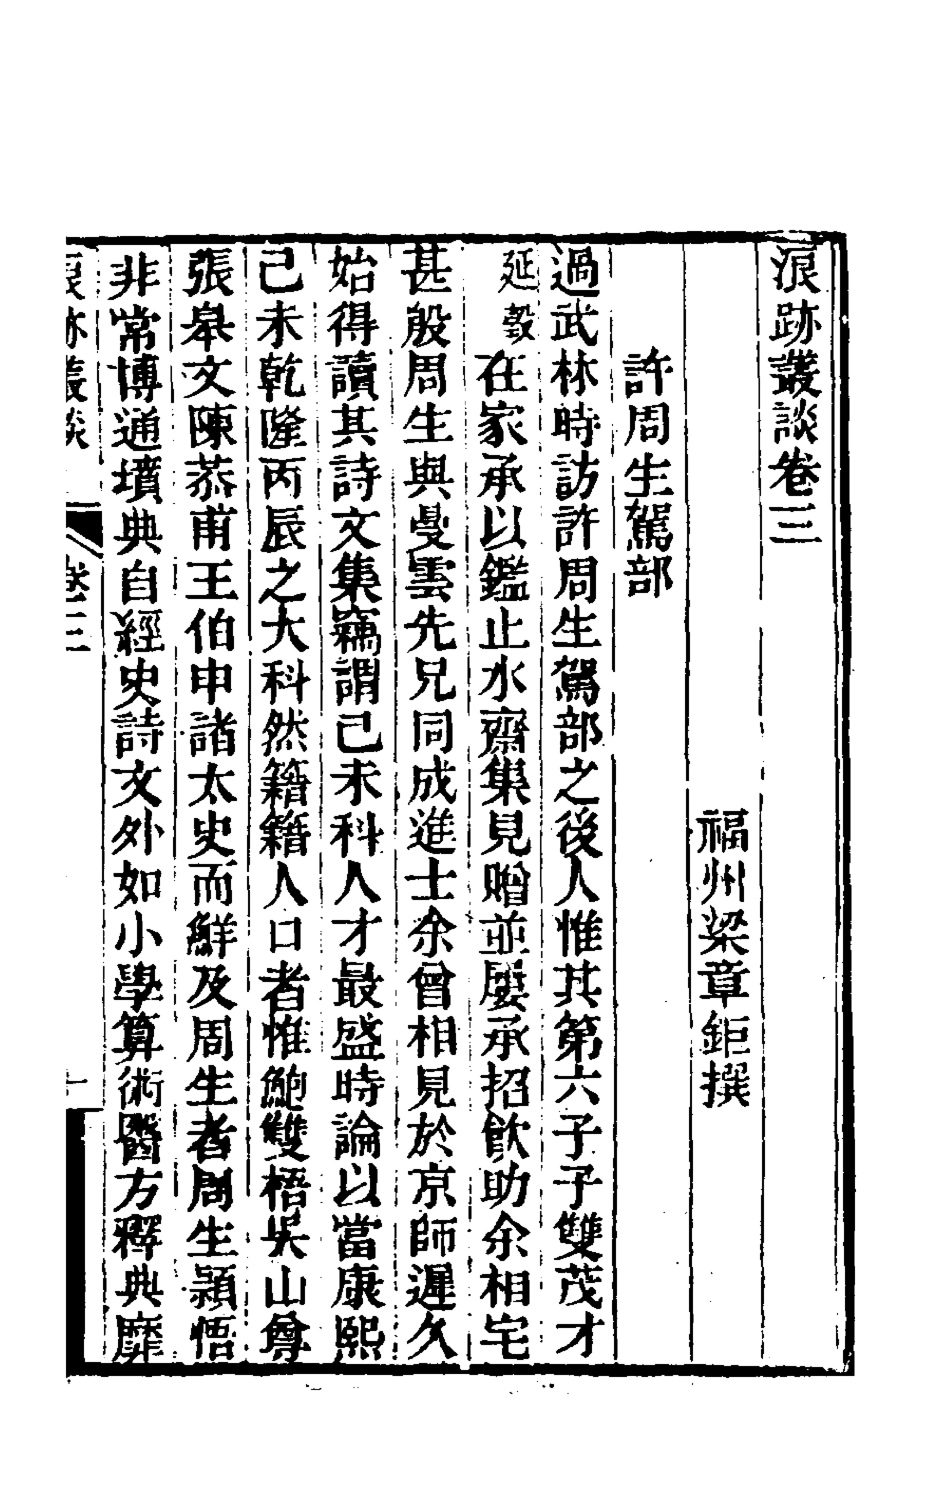 浪跡叢談卷三
福州梁章鉅撰
許周生駕部
過武林時訪許周生駕部之後人惟其第六子子雙茂才
延敎在家承以鑑止水齋集見贈並屢承招飮助余相宅
甚殷周生與曼雲先兄同成進士余曾相見於京師遲久
始得讀其詩文集竊謂己未科人才最盛時論以當康熙
己未乾隆丙辰之大科然籍籍人口者惟鮑雙梧吳山尊
張皋文陳恭甫王伯申諸太史而鮮及周生者周生穎悟
非常博通墳典自經史詩文外如小學算術醫方釋典靡
浪跡叢談
卷三
一